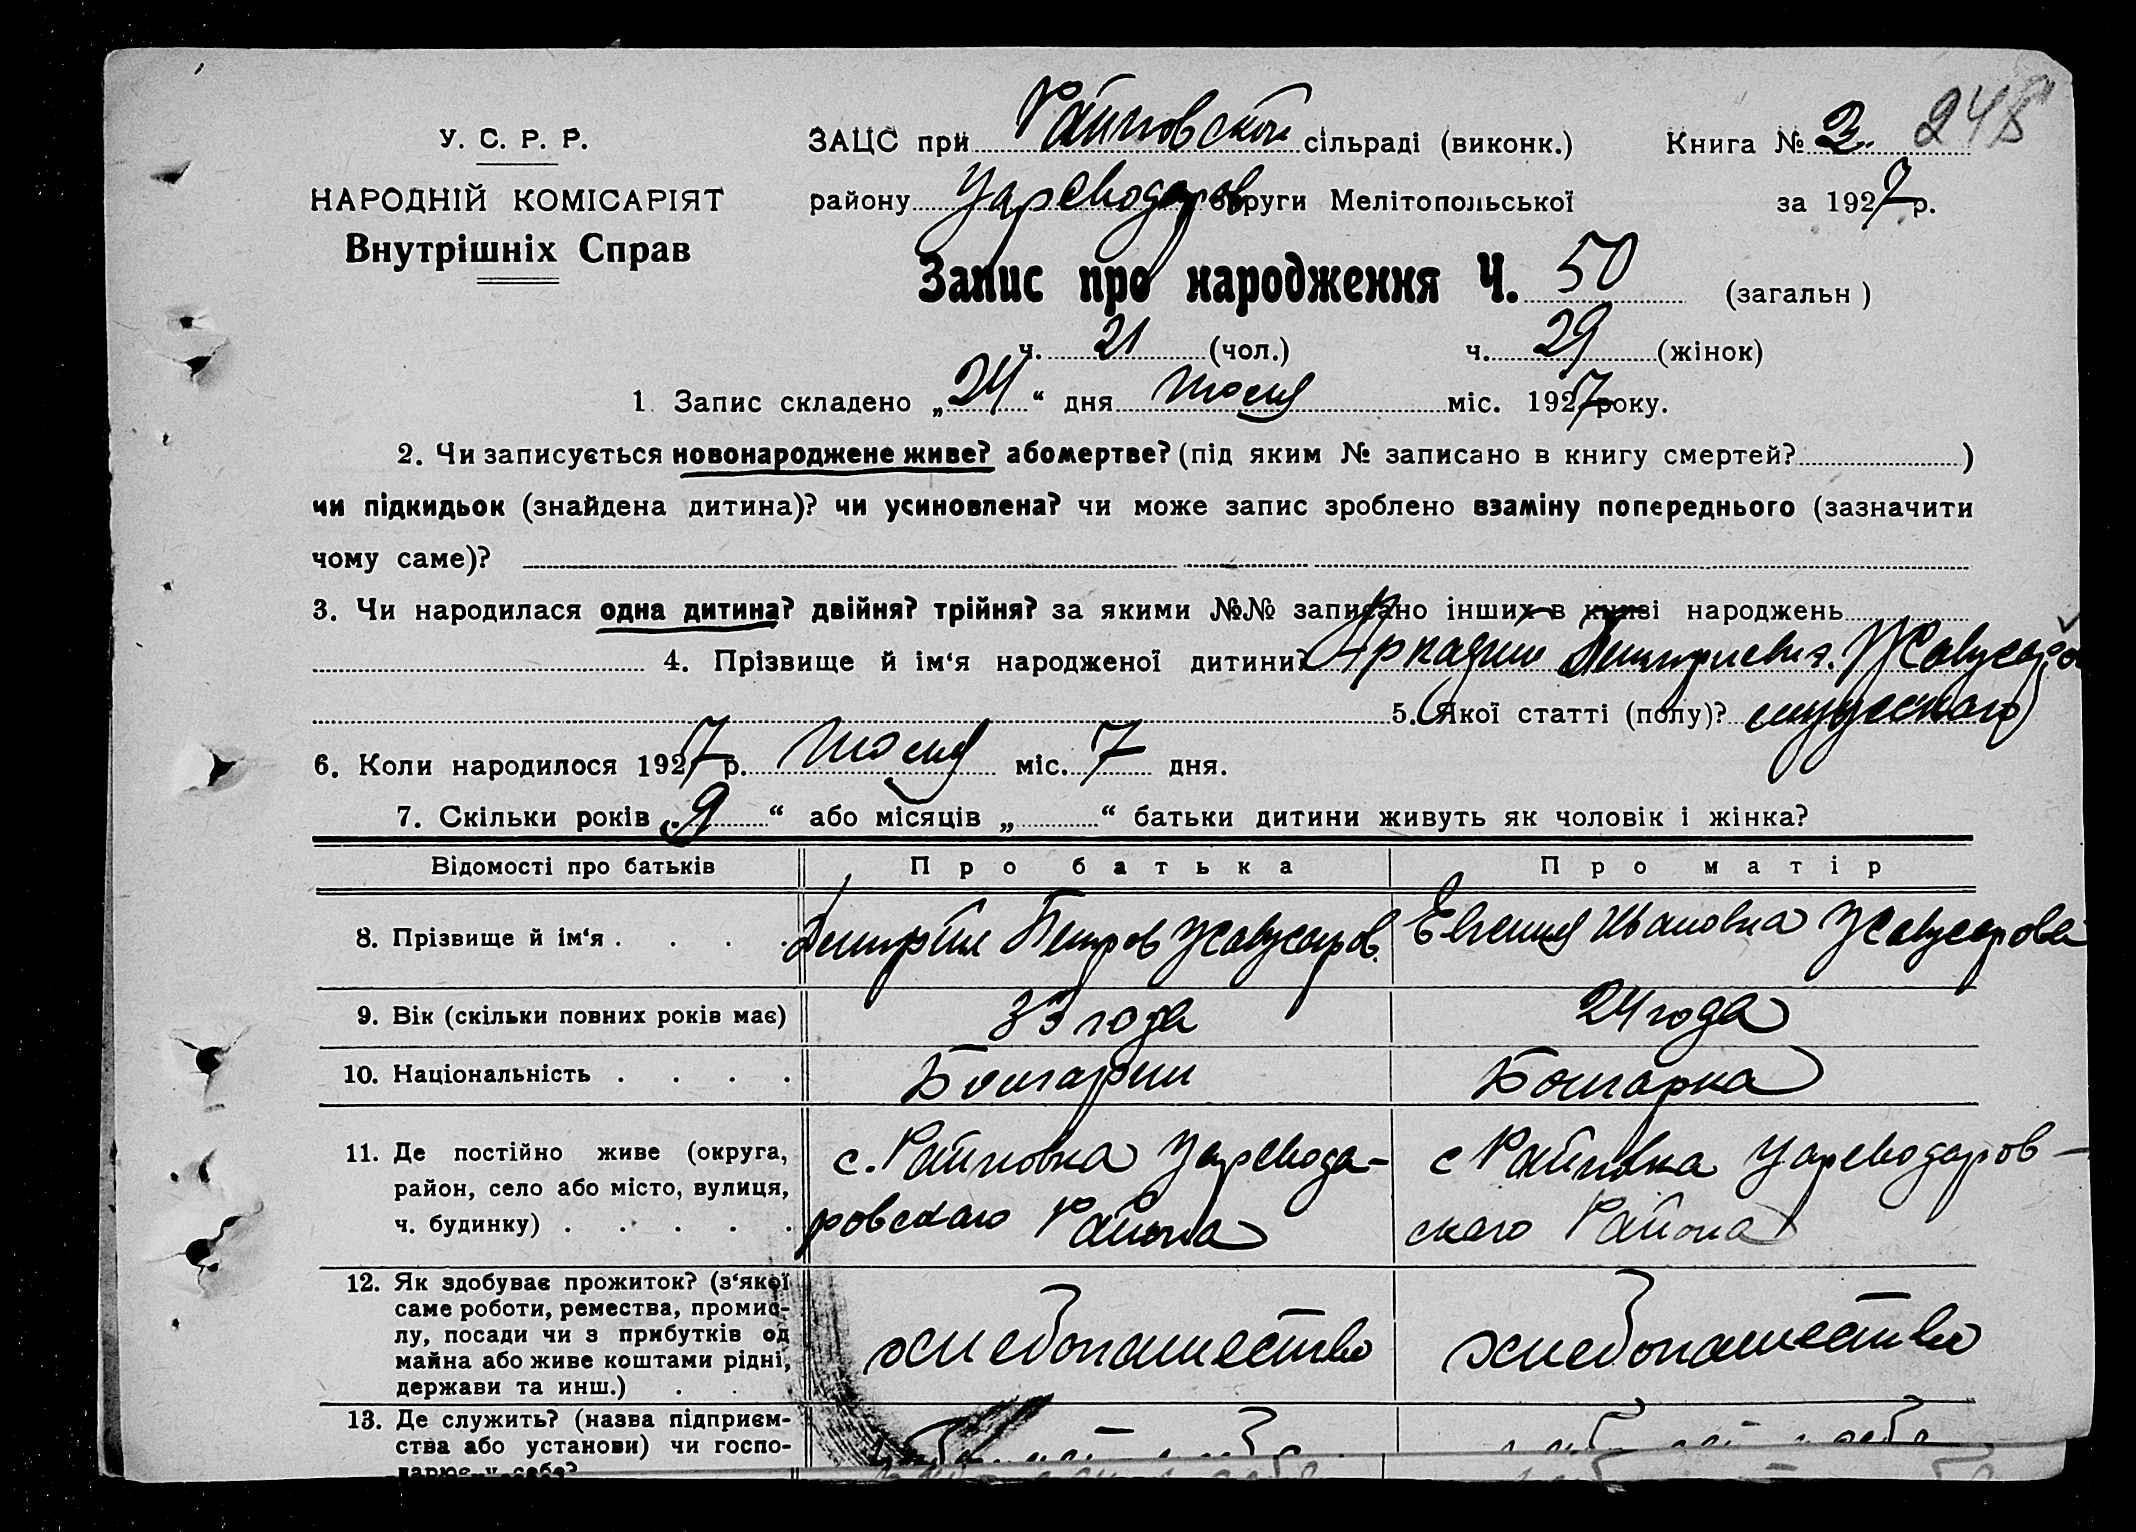 У. С. Р. Р.
НАРОДНІЙ КОМІСАРІЯТ
Внутрішніх Справ
ЗАЦС при Райновской сільраді (виконк.) Книга № 2. 248
району Цареводаров округи Мелітопольської за 1927 р.
Запис про народження Ч. 50 (загальн)
ч. 21 (чол.) ч. 29 (жінок)
1. Запис складено „24“ дня Июля міс. 1927 року.
2. Чи записується новонароджене живе? або мертве? (під яким № записано в книгу смертей? )
чи підкидьок (знайдена дитина)? чи усиновлена? чи може запис зроблено взаміну попереднього (зазначити
чому саме)?
3. Чи народилася одна дитина? двійня? трійня? за якими №№ записано інших в книзі народжень
4. Прізвище й ім‘я народженої дитини? Аркадий Дмитриевич
5. Якої статті (полу)? мужескаго
6. Коли народилося 1927 р. Июля міс. 7 дня.
7. Скільки років „9“ або місяців „ “ батьки дитини живуть як чоловік і жінка?
Відомості про батьків Про батька Про матір
8. Прізвище й ім‘я . . . . Дмитрий Петров Евгения Ивановна
9. Вік (скільки повних років має) 33 года 24 года
10. Національність . . . . Болгарин Болгарка
11. Де постійно живе (округа, с. Райновка Царевода- с Райновка Цареводаров-
район, село або місто, вулиця,
ч. будинку) . . . . . ровскаго Района скаго Района
12. Як здобуває прожиток? (з‘якої
саме роботи, ремества, промис-
лу, посади чи з прибутків од хлебопашество хлебопашество
майна або живе коштами рідні,
держави та инш.) . .
13. Де служить? (назва підприєм-
ства або установи) чи госпо-
дарює у себе?